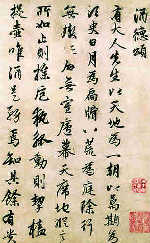 酒德頌
有大人先生以天地為一朝以萬期為
須臾日月為扃牖八荒為庭除行
無轍跡居無室廬幕天席地縱意
所如止則操卮執觚動則挈榼
提壺唯酒是務焉知其餘有貴